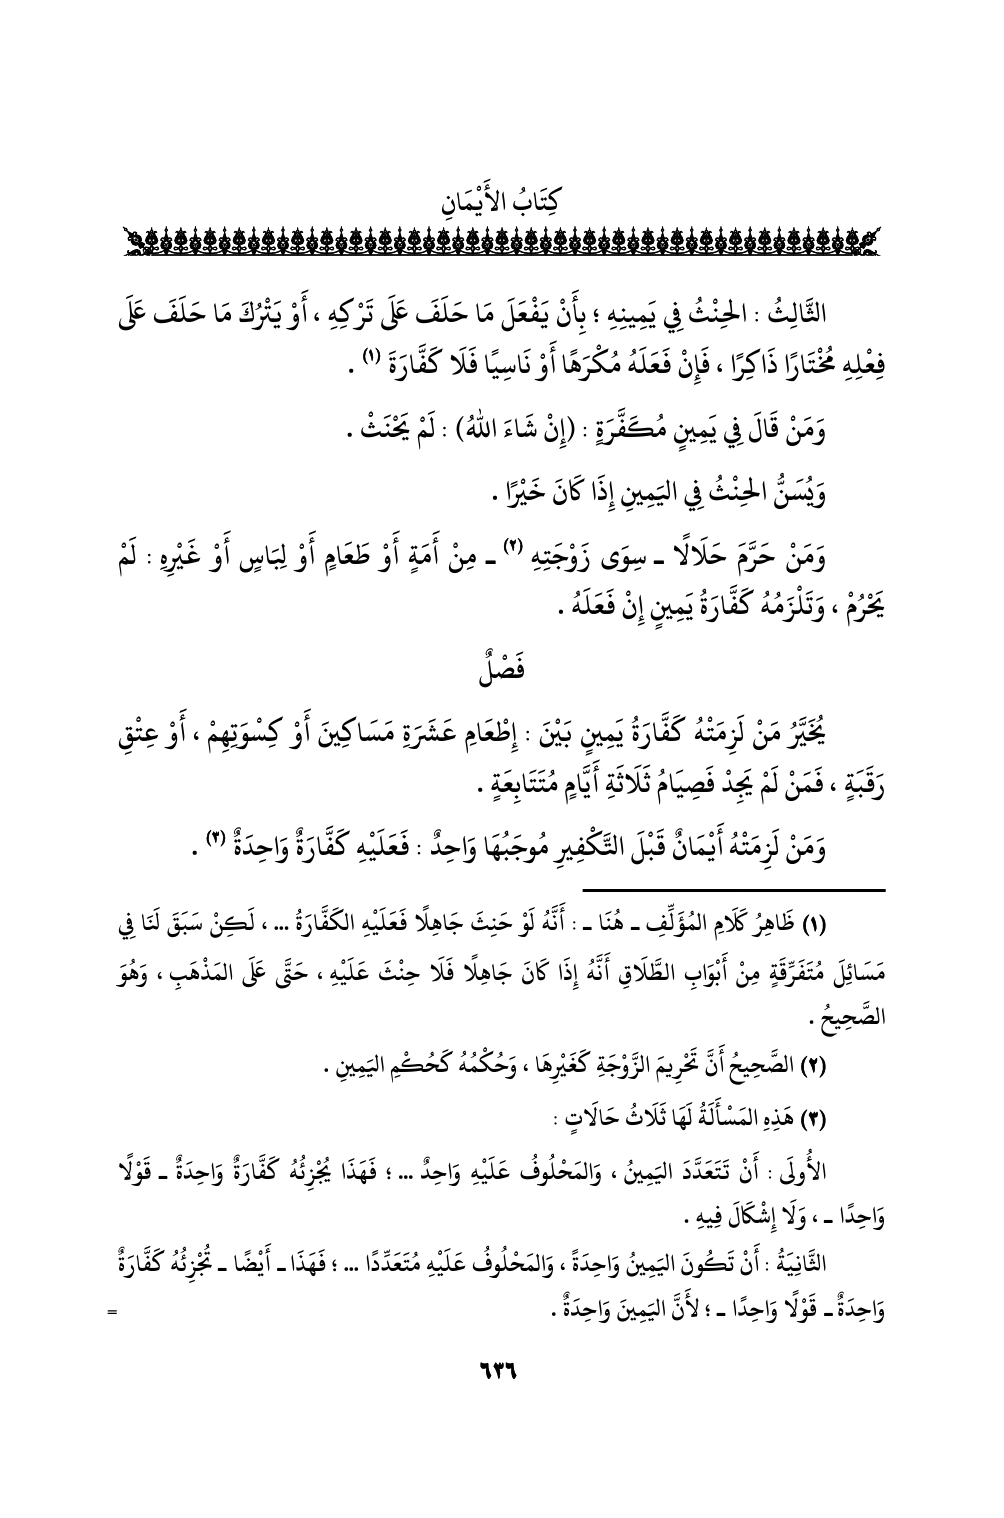 كِتَابُ الأَيْمَانِ
الثَّالِثُ : الحِنْثُ فِي يَمِينِهِ ؛ بِأَنْ يَفْعَلَ مَا حَلَفَ عَلَى تَرْكِهِ ، أَوْ يَتْرُكَ مَا حَلَفَ عَلَى
فِعْلِهِ مُخْتَارًا ذَاكِرًا ، فَإِنْ فَعَلَهُ مُكْرَهًا أَوْ نَاسِيًا فَلَا كَفَّارَةَ (١) .
وَمَنْ قَالَ فِي يَمِينٍ مُكَفَّرَةٍ : (إِنْ شَاءَ اللهُ) : لَمْ يَحْنَثْ .
وَيُسَنُّ الحِنْثُ فِي اليَمِينِ إِذَا كَانَ خَيْرًا .
وَمَنْ حَرَّمَ حَلَالًا ـ سِوَى زَوْجَتِهِ (٢) ـ مِنْ أَمَةٍ أَوْ طَعَامٍ أَوْ لِبَاسٍ أَوْ غَيْرِهِ : لَمْ
يَحْرُمْ ، وَتَلْزَمُهُ كَفَّارَةُ يَمِينٍ إِنْ فَعَلَهُ .
فَصْلٌ
يُخَيَّرُ مَنْ لَزِمَتْهُ كَفَّارَةُ يَمِينٍ بَيْنَ : إِطْعَامِ عَشَرَةِ مَسَاكِينَ أَوْ كِسْوَتِهِمْ ، أَوْ عِتْقِ
رَقَبَةٍ ، فَمَنْ لَمْ يَجِدْ فَصِيَامُ ثَلَاثَةِ أَيَّامٍ مُتَتَابِعَةٍ .
وَمَنْ لَزِمَتْهُ أَيْمَانٌ قَبْلَ التَّكْفِيرِ مُوجَبُهَا وَاحِدٌ : فَعَلَيْهِ كَفَّارَةٌ وَاحِدَةٌ (٣) .
(١) ظَاهِرُ كَلَامِ المُؤَلِّفِ ـ هُنَا ـ : أَنَّهُ لَوْ حَنِثَ جَاهِلًا فَعَلَيْهِ الكَفَّارَةُ ... ، لَكِنْ سَبَقَ لَنَا فِي
مَسَائِلَ مُتَفَرِّقَةٍ مِنْ أَبْوَابِ الطَّلَاقِ أَنَّهُ إِذَا كَانَ جَاهِلًا فَلَا حِنْثَ عَلَيْهِ ، حَتَّى عَلَى المَذْهَبِ ، وَهُوَ
الصَّحِيحُ .
(٢) الصَّحِيحُ أَنَّ تَحْرِيمَ الزَّوْجَةِ كَغَيْرِهَا ، وَحُكْمُهُ كَحُكْمِ اليَمِينِ .
(٣) هَذِهِ المَسْأَلَةُ لَهَا ثَلَاثُ حَالَاتٍ :
الأُولَى : أَنْ تَتَعَدَّدَ اليَمِينُ ، وَالمَحْلُوفُ عَلَيْهِ وَاحِدٌ ... ؛ فَهَذَا يُجْزِئُهُ كَفَّارَةٌ وَاحِدَةٌ ـ قَوْلًا
وَاحِدًا ـ ، وَلَا إِشْكَالَ فِيهِ .
الثَّانِيَةُ : أَنْ تَكُونَ اليَمِينُ وَاحِدَةً ، وَالمَحْلُوفُ عَلَيْهِ مُتَعَدِّدًا ... ؛ فَهَذَا ـ أَيْضًا ـ تُجْزِئُهُ كَفَّارَةٌ
وَاحِدَةٌ ـ قَوْلًا وَاحِدًا ـ ؛ لأَنَّ اليَمِينَ وَاحِدَةٌ . =
٦٣٦